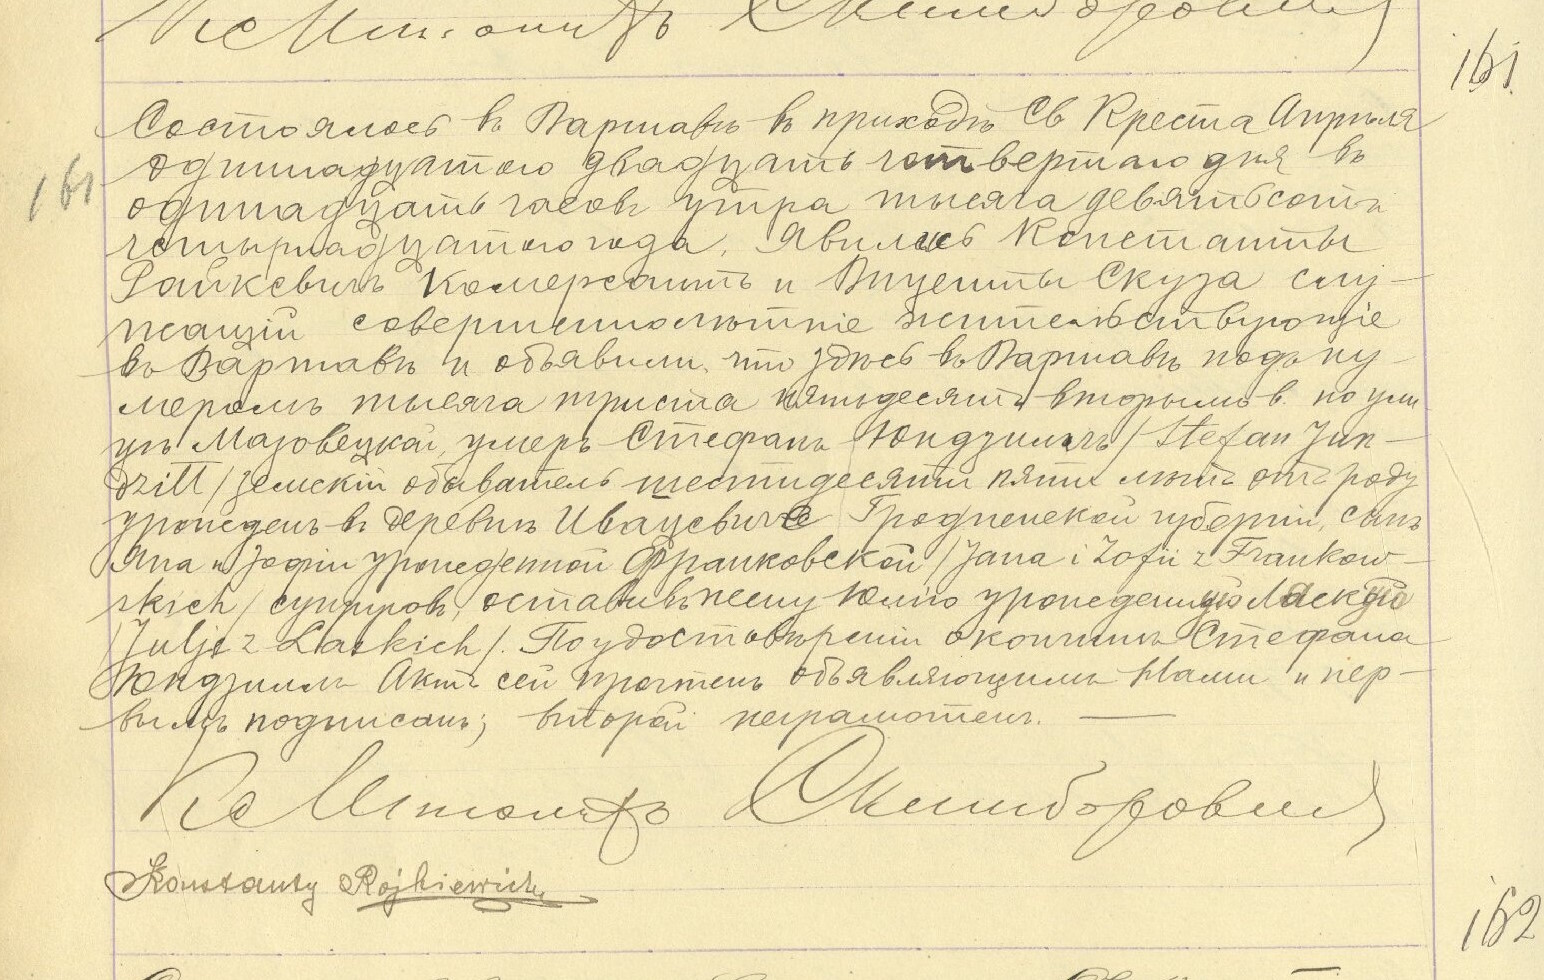 Кс Антонитъ Скимборовичъ
161.
161
Состоялось въ Варшавѣ въ приходѣ Св Креста Апрѣля
одиннадцатого двадцать четвертаго дня въ
одинадцать часовъ утра тысяча девятьсотъ
четырнадцатого года. Явились Константы
Райкевичъ Комерсантъ и Виценты Скуза слу-
жащій совершеннолѣтніе жительствующіе
въ Варшавѣ и объявили, что здѣсь въ Варшавѣ подъ ну-
меромъ тысяча триста пятьдесятъ вторымъ в. по ули
цѣ Мазовецкой, умеръ Стефанъ Юндзиллъ /Stefan Jun-
dzill/ земскій обыватель шестидесяти пяти лѣтъ отъ роду
урожденъ въ деревнѣ Ивацевиче Гродненской губерніи, сынъ
Яна и Зофіи урожденной Франковской /Jana i Zofii z Frankow-
skich/ супруговъ, оставивъ жену Юлію урожденную Ласкую
/Julję z Laskich/. По удостовѣреніи о кончинѣ Стефана
Юндзилла Актъ сей прочтенъ объявляющимъ Нами и пер-
вымъ подписанъ; второй неграмотенъ. —
Кс Скимборовичъ
Konstanty Rojkiewicz
162